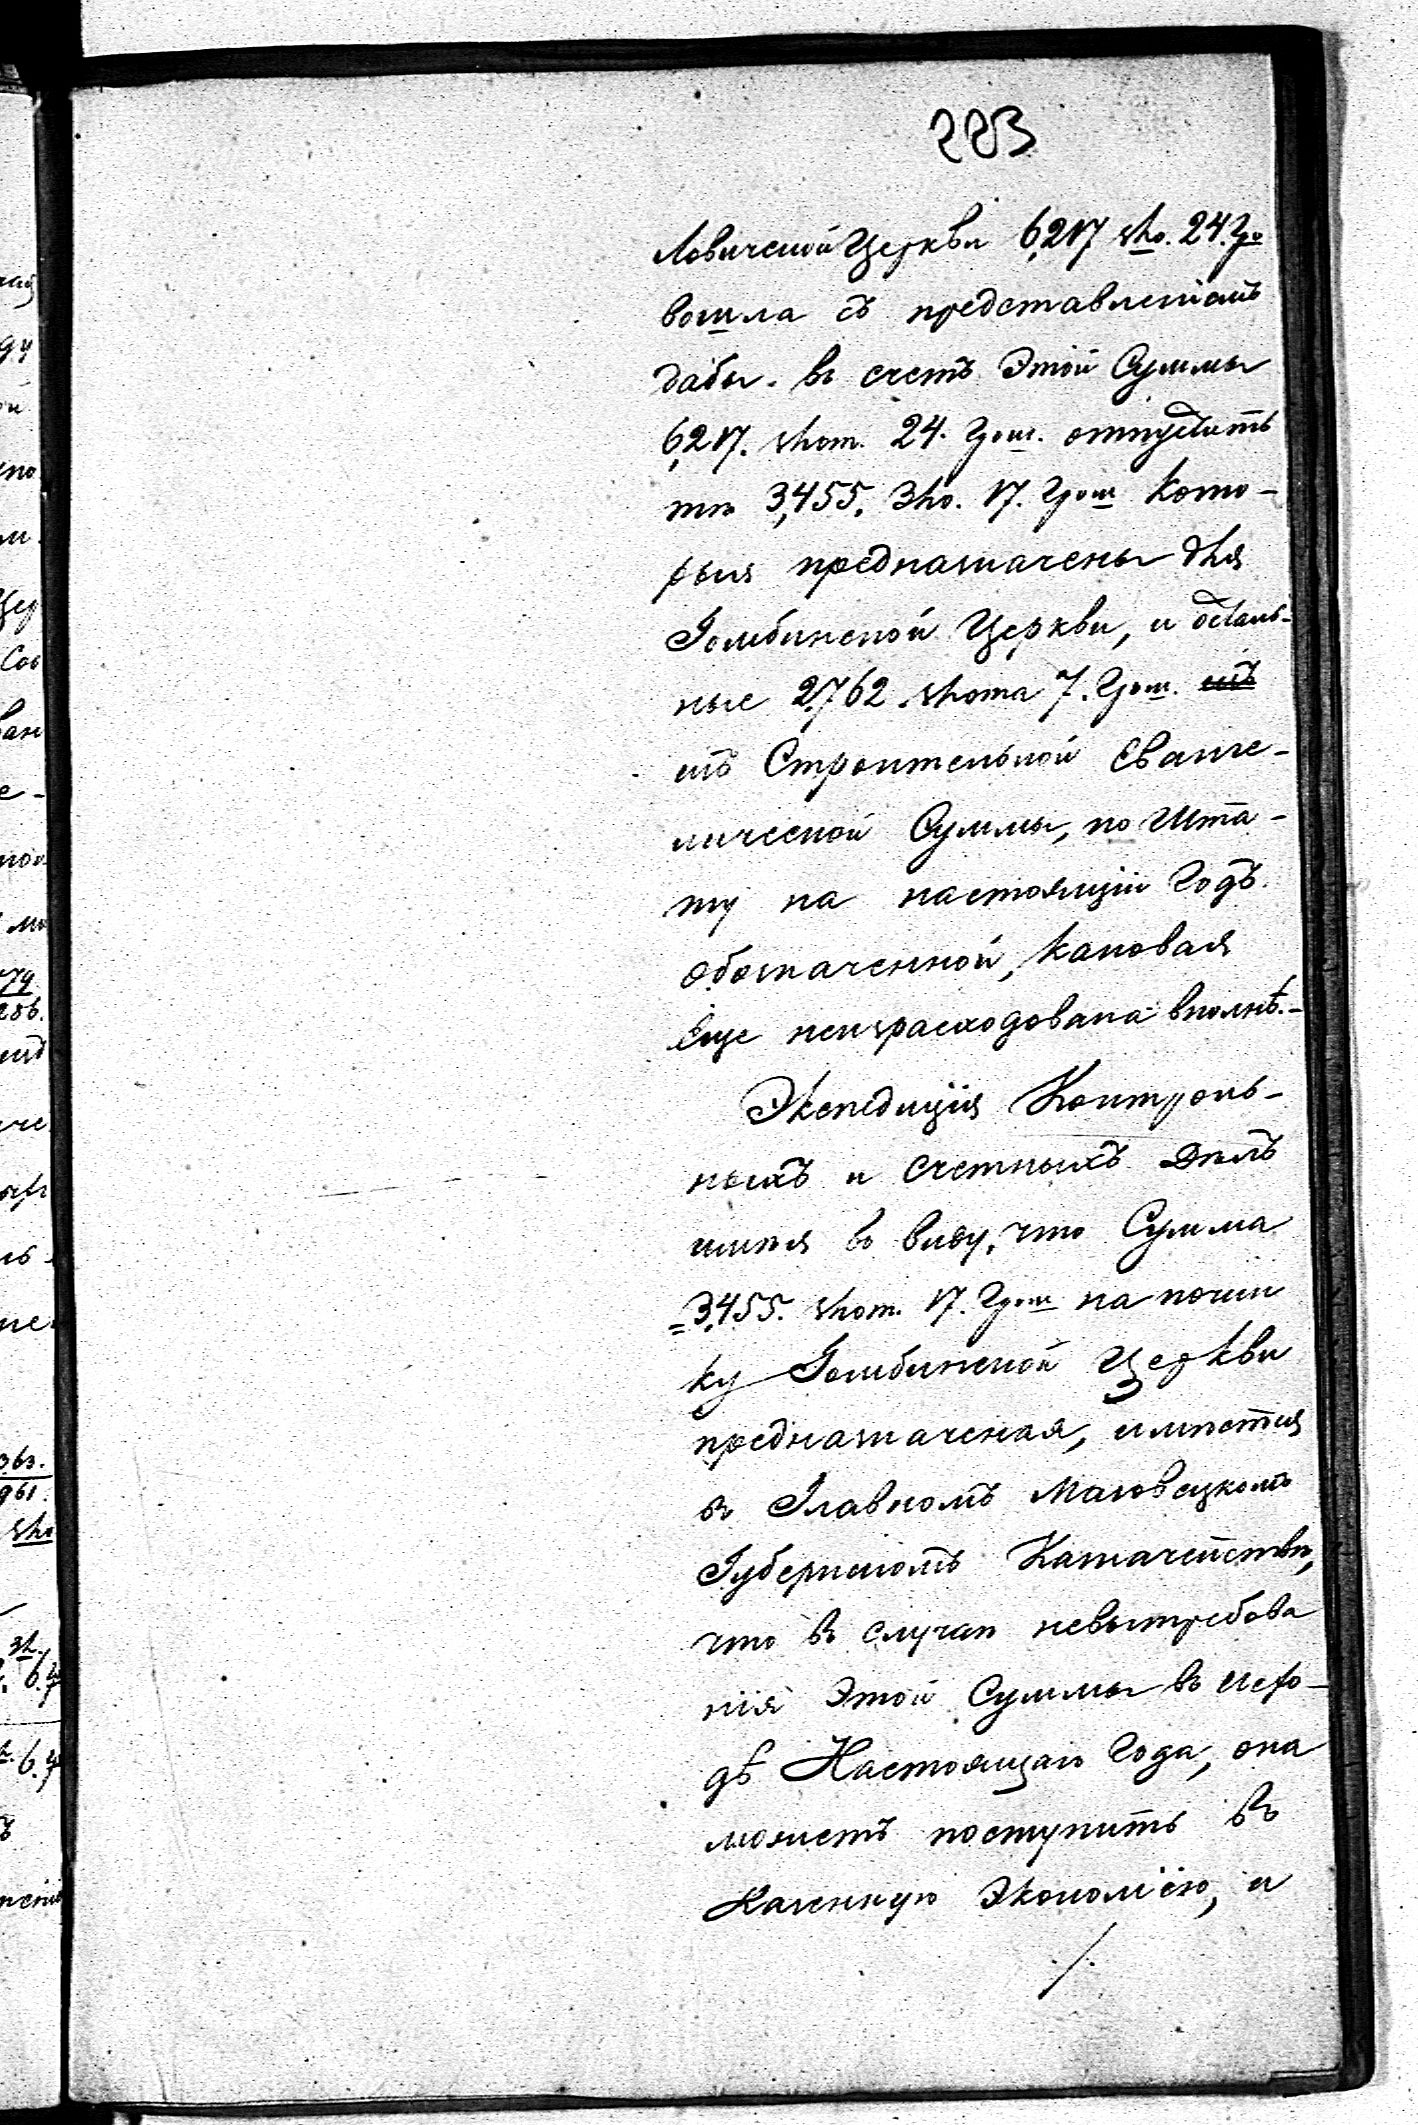 283
Ловичской Церкви 6,217 зло. 24. гр.
вошла съ представленіемъ
дабы. въ счетъ этой Суммы
6,217. злот. 24. грош. отпустить
тѣ 3,455. зло. 17. грош кото-
рыя предназначены для
Гомбинской Церкви, и осталь-
ные 2,762 злота 7. грош.
изъ Строительной Еванге-
лической Суммы, по Шта-
ту на настоящій Годъ
обозначенной, каковая
еще неизрасходована вполнѣ.-
Экспедиція Контроль-
ныхъ и Счетныхъ Дѣлъ
имѣя въ виду, что Сумма
=3,455. злот. 17. грош на почин
ку Гомбинской Церкви
предназначеная, имѣется
въ Главномъ Мазовецкомъ
Губернскомъ Казначействѣ,
что въ случаѣ невытребова
нія этой Суммы въ исхо-
дѣ Настоящаго Года, она
можетъ поступить въ
Казенную Экономію, и
./.